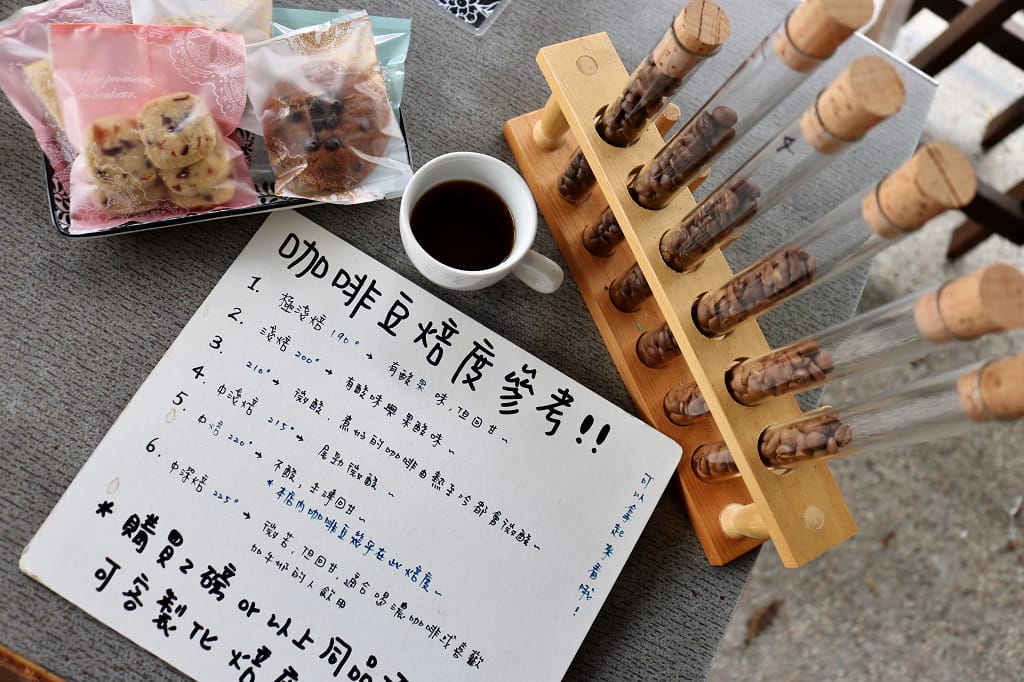 Une promesse
de bonheur.
咖啡豆焙度參考!!
1. 極淺焙 190° → 有酸果味,但回甘~
2. 淺焙 200° → 有酸味與果酸味~
3. 210° → 微酸,煮好的咖啡由熱至冷都會微酸~
4. 中淺焙 215° → 尾韻微酸~
5. 中焙 220° → 不酸,生津回甘~
*本店內咖啡豆幾乎在此焙度~
6. 中深焙 225° → 微苦,但回甘,適合喝濃咖啡或喜歡
加牛奶的人飲用
*購買2磅or以上同品
可客製化焙度
可以拿起來看哦!
4